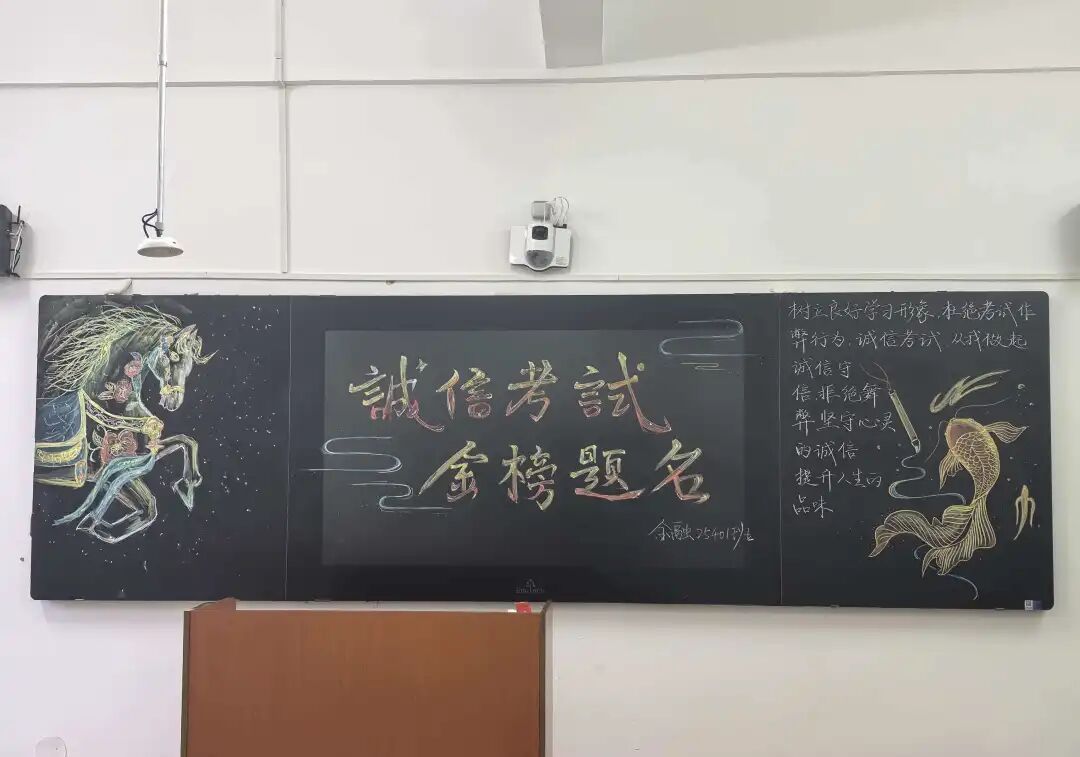 誠信考試
金榜题名
金融25401班
树立良好学习形象,杜绝考试作
弊行为,诚信考试,从我做起
诚信守
信,拒绝舞
弊,坚守心灵
的诚信
提升人生的
品味